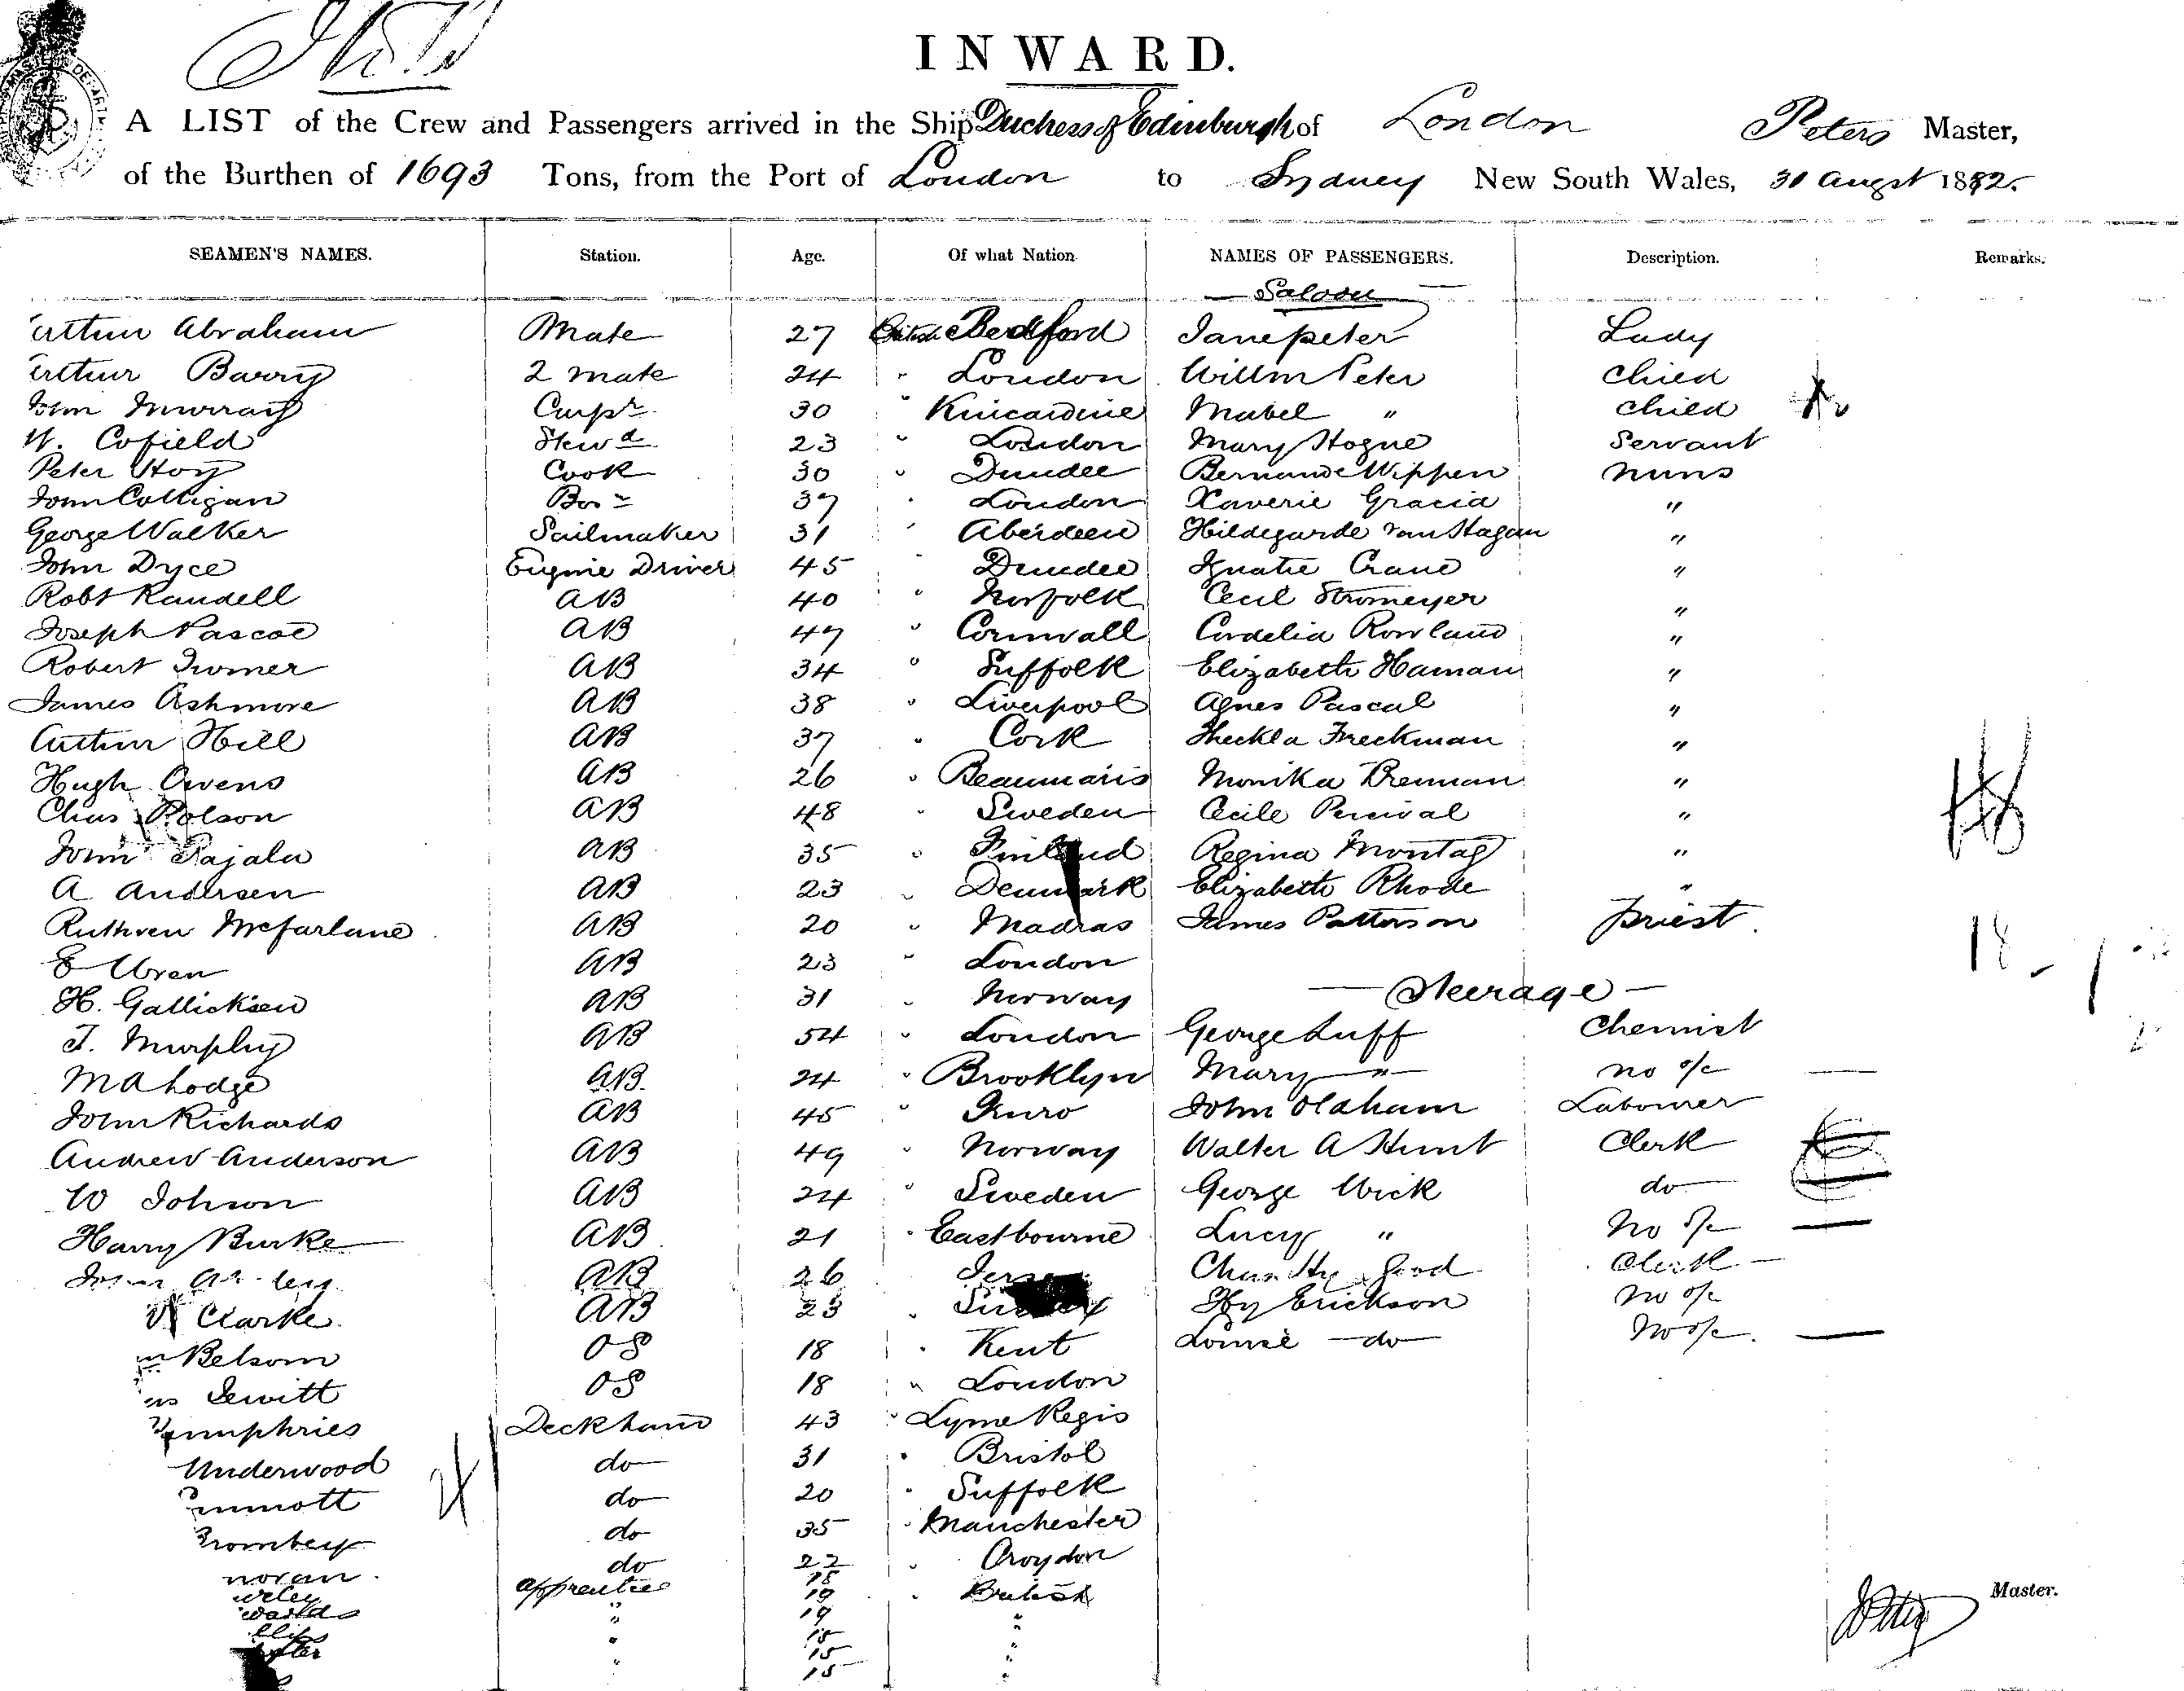 INWARD.
A LIST of the Crew and Passengers arrived in the Ship Duchess of Edinburgh of London Peters Master,
of the Burthen of 1693 Tons, from the Port of London to Sydney New South Wales, 31 Augst 1882.
SEAMEN'S NAMES. Station. Age. Of what Nation NAMES OF PASSENGERS. Description. Remarks.
Saloon
Abraham Mate 27 British Bedford Jane peter Lady
Barry 2 mate 24 " London Willm Peter Child
John Murray Carpr 30 " Kincardine Mabel " child
W. Cofield Stewd 23 " London Mary Hogue Servant
Peter Hoy Cook 30 " Dundee Wippen nuns
John Colligan Bosn 37 " London Xaverie Gracia "
George Walker Sailmaker 31 " Aberdeen Hildegarde van Hagan "
John Dyce Engine Driver 45 " Dundee Ignatie Crane "
Robt Randell AB 40 " Norfolk Cecil Stromeyer "
Joseph Pascoe AB 47 " Cornwall Cordelia Rowland "
Robert AB 34 " Suffolk Elizabeth Haman "
James Ashmore AB 38 " Liverpool Agnes Pascal "
Arthur Hill AB 37 " Cork Theckla Freckman "
Hugh Owens AB 26 " Beaumaris Monika Brennan "
Chas Polson AB 48 " Sweden Cecile Percival "
John Pajala AB 35 " Finland Regina Montag "
A Andersen AB 23 " Denmark Elizabeth Rhode "
Ruthven McFarlane AB 20 " Madras James Patterson priest
E Uren AB 23 " London
H. Gallicksen AB 31 " Norway Steerage
T. Murphy AB 54 " London George Luff Chemist
M A Lodge AB 24 " Brooklyn Mary " no o/c
John Richards AB 45 " Truro John Oldham Labourer
Andrew Anderson AB 49 " Norway Walter A Hunt Clerk
W Johson AB 24 " Sweden George Wick do
Harry Burke AB 21 " Eastbourne Lucy " No o/c
AB 26 Clerk
Clarke AB 23 " Hy Erickson no o/c
Belsom OS 18 " Kent Louise do No o/c
Lewitt OS 18 " London
Humphries Deck hand 43 " Lyme Regis
Underwood do 31 " Bristol
do 20 " Suffolk
do 35 " Manchester
do 22 " Croydon
apprentice 18
19 " British
" 19 "
" 15 "
15 "
" 15 "
Master.